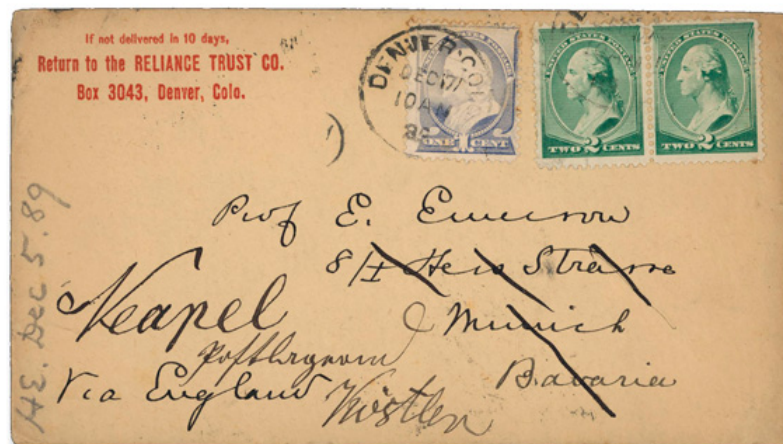 If not delivered in 10 days,
Return to the RELIANCE TRUST CO.
Box 3043, Denver, Colo.
DENVER COL
DEC 17
10 AM
UNITED STATES POSTAGE
ONE 1 CENT
UNITED STATES POSTAGE
TWO 2 CENTS
UNITED STATES POSTAGE
TWO 2 CENTS
Prof E. Emerson
8/I Hess Strasse
Munich
Bavaria
Neapel
Via England
HE. Dec 5. 89